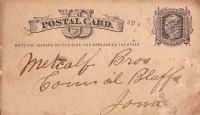 POSTAL CARD.
WRITE THE ADDRESS ON THIS SIDE - THE MESSAGE ON THE OTHER
Metcalf Bros
Council Bluffs
Iowa